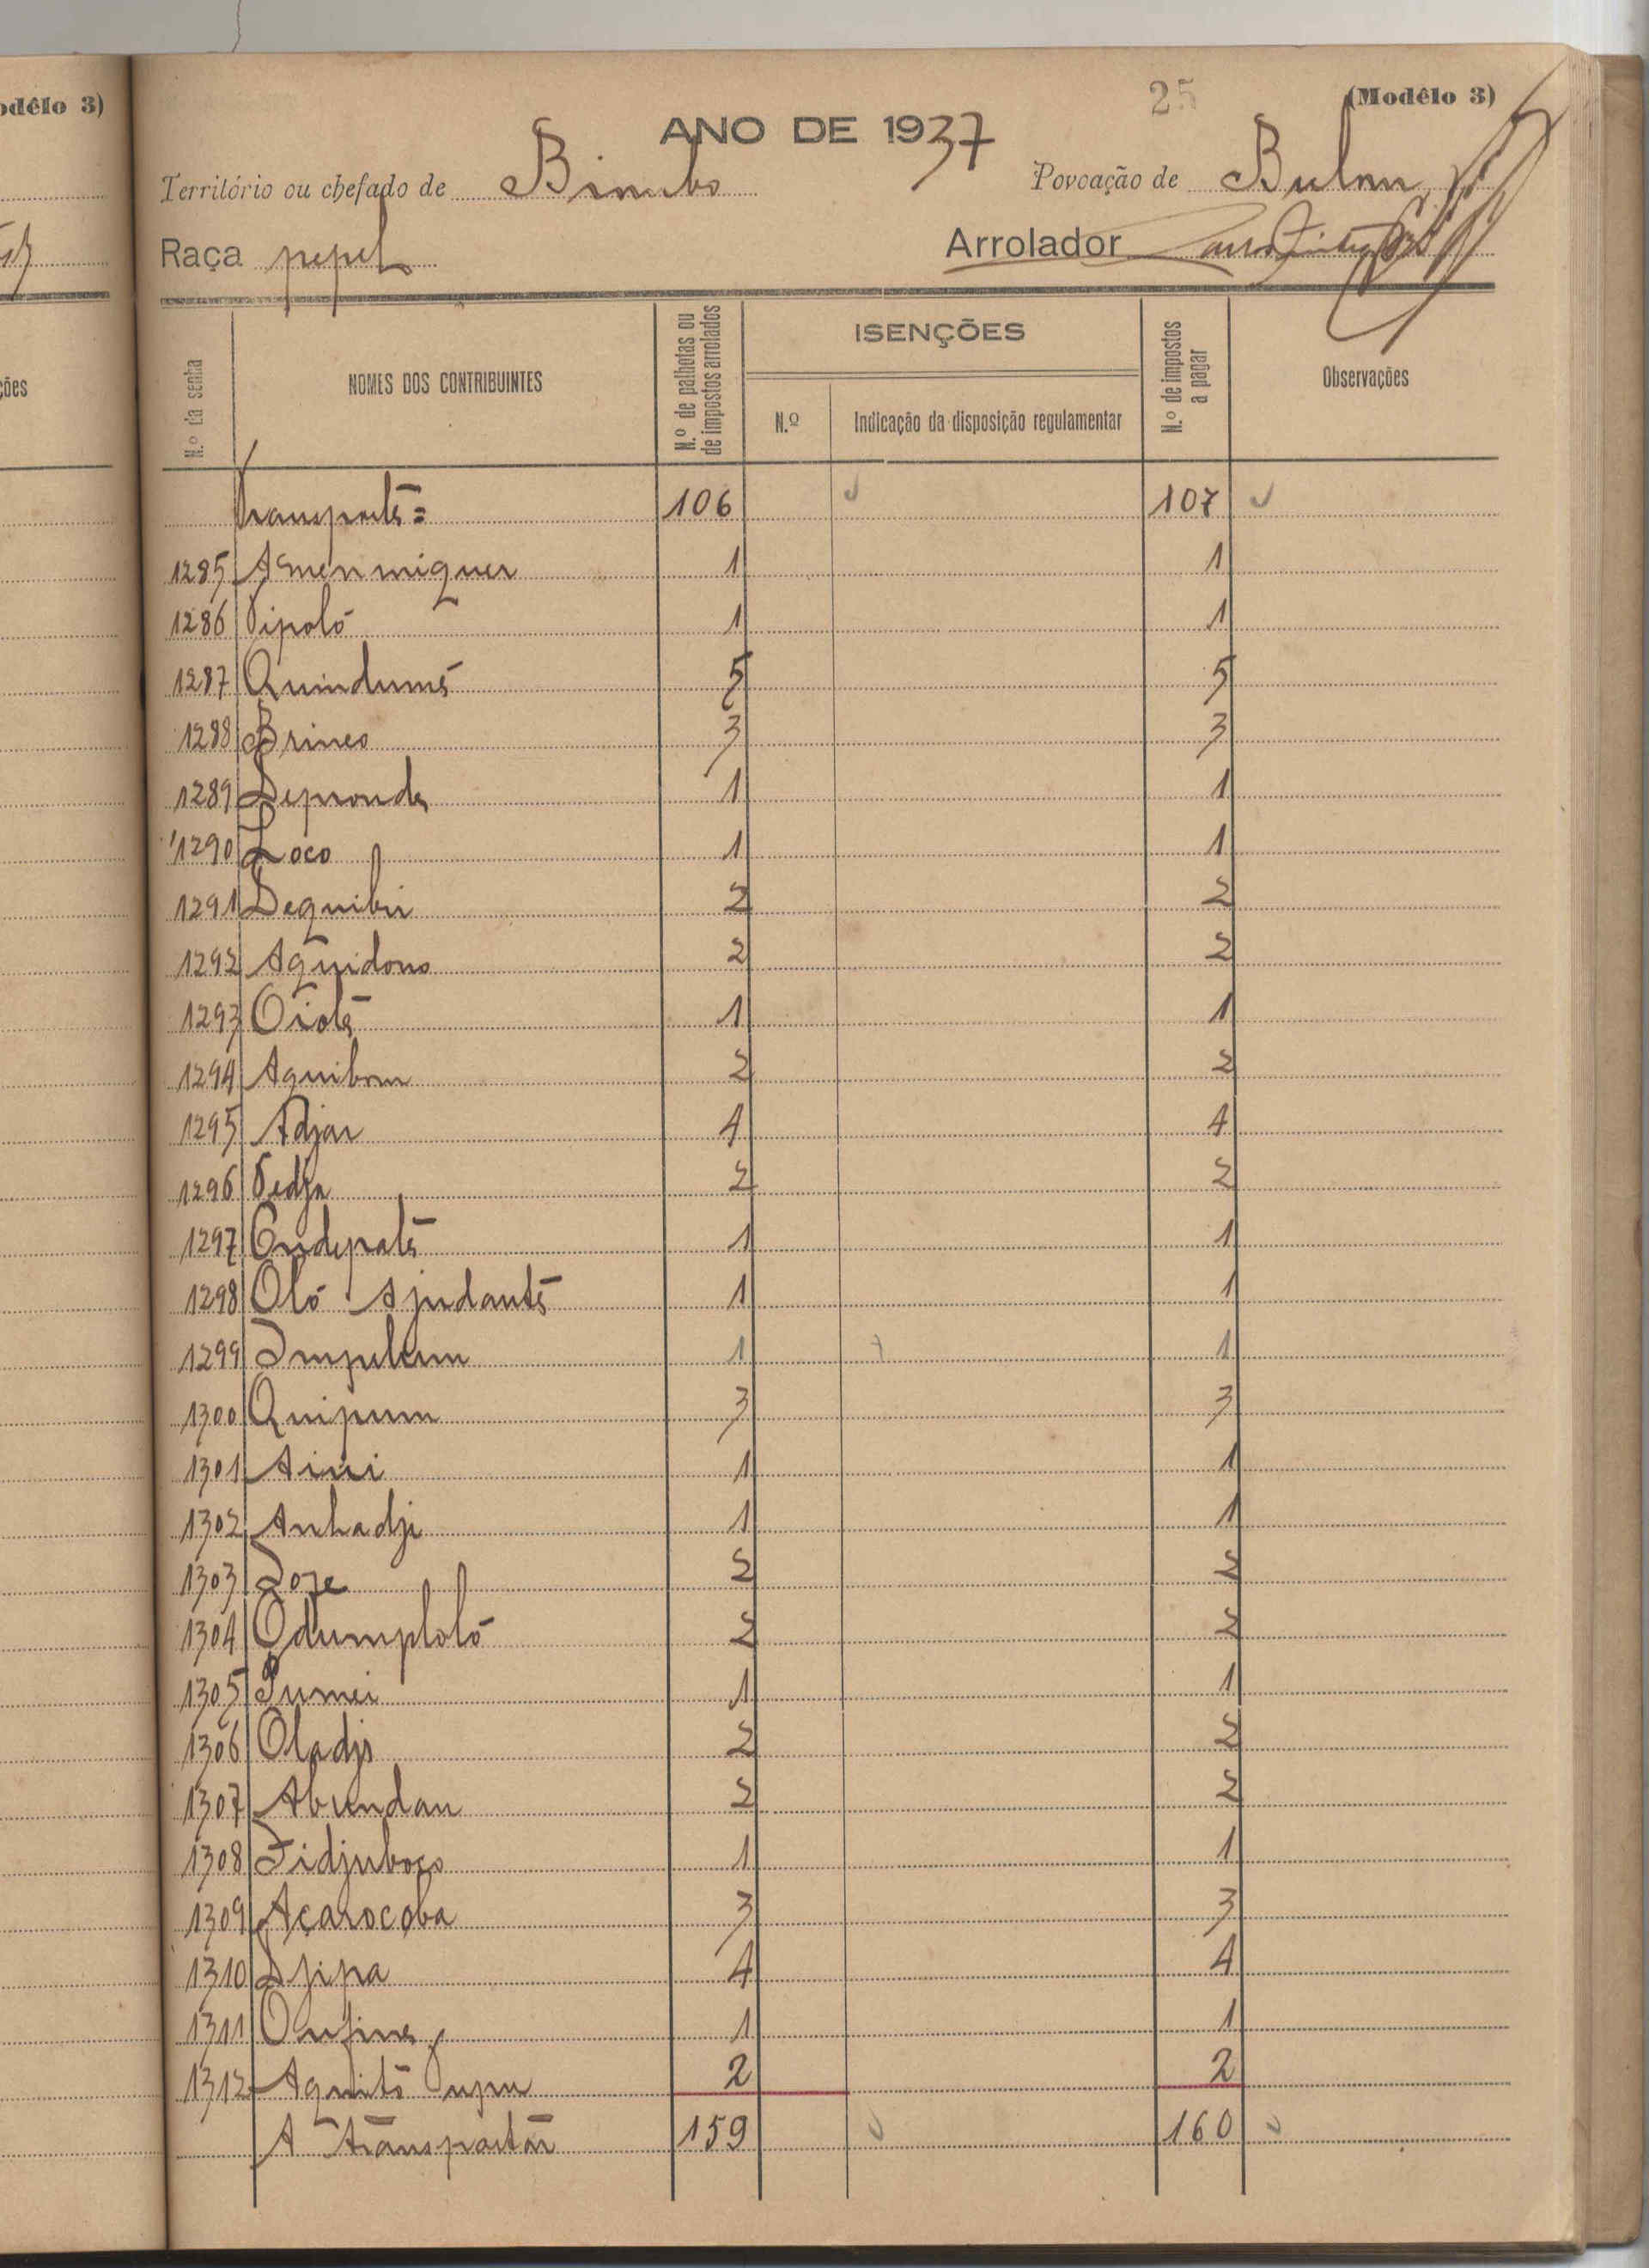 odêlo 3)
ções
25
(Modêlo 3)
ANO DE 1937
Território ou chefado de Bimbo Povoação de Bulom
Raça pepel Arrolador
N.º da senha
NOMES DOS CONTRIBUINTES
N.º de palhotas ou de impostos arrolados
ISENÇÕES
N.º
Indicação da disposição regulamentar
N.º de impostos a pagar
Observações
Transporte= 106 107
1285 1 1
1286 1 1
1287 Quindumé 5 5
1288 Brineo 3 3
1289 Deponda 1 1
1290 Loco 1 1
1291 Dequibir 2 2
1292 Aquidono 2 2
1293 Oioté 1 1
1294 Aquibom 2 2
1295 Adjar 4 4
1296 2 2
1297 Ondepaté 1 1
1298 Oló Ajudante 1 1
1299 Impulum 1 1
1300 Quipum 3 3
1301 Aini 1 1
1302 Anhadji 1 1
1303 Joze 2 2
1304 Odumploló 2 2
1305 Pumei 1 1
1306 Oladjo 2 2
1307 Abundau 2 2
1308 Fidjuboço 1 1
1309 Açarocoba 3 3
1310 Djipa 4 4
1311 1 1
1312 Aquitó upu 2 2
A transportar 159 160